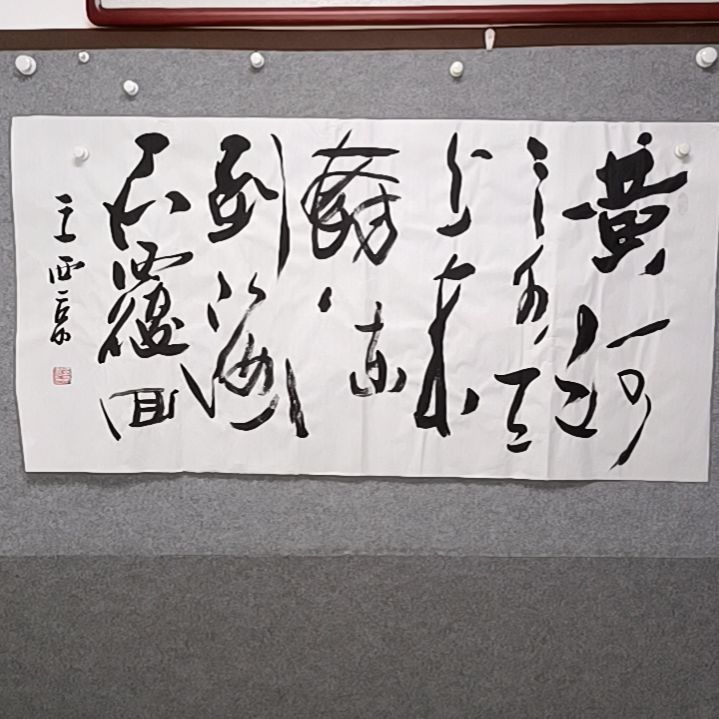 黄河
之水天
上来
奔流
到海
不覆回
王西京